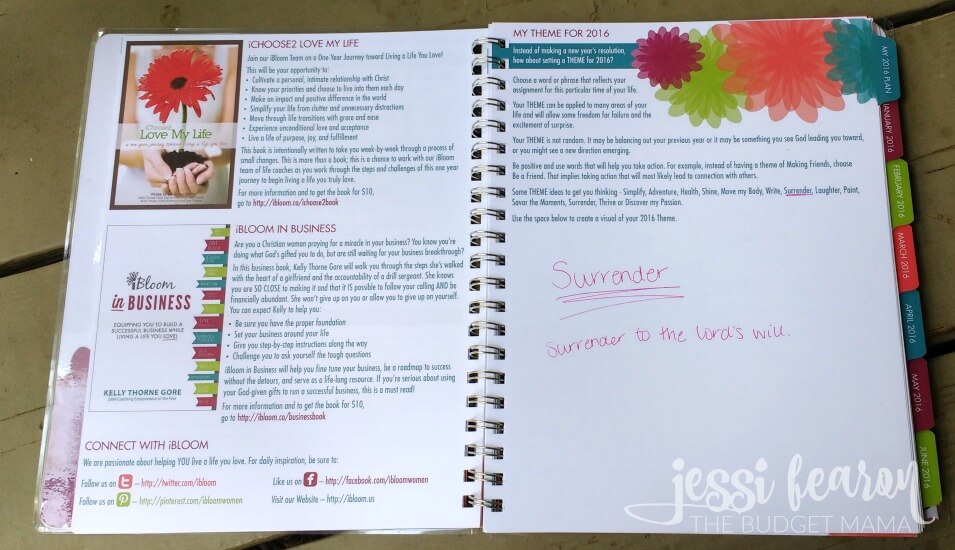 iCHOOSE2 LOVE MY LIFE
Join our iBloom Team on a One-Year Journey toward Living a Life You Love!
This will be your opportunity to:
• Cultivate a personal, intimate relationship with Christ
• Know your priorities and choose to live into them each day
• Make an impact and positive difference in the world
• Simplify your life from clutter and unnecessary distractions
• Move through life transitions with grace and ease
• Experience unconditional love and acceptance
• Live a life of purpose, joy, and fulfillment
This book is intentionally written to take you week-by-week through a process of
small changes. This is more than a book; this is a chance to work with our iBloom
team of life coaches as you work through the steps and challenges of this one year
journey to begin living a life you truly love.
For more information and to get the book for $10,
go to http://ibloom.co/ichoose2book
iChoose2
Love My Life
iBLOOM IN BUSINESS
Are you a Christian woman praying for a miracle in your business? You know you're
doing what God's gifted you to do, but are still waiting for your business breakthrough?
In this business book, Kelly Thorne Gore will walk you through the steps she's walked
with the heart of a girlfriend and the accountability of a drill sergeant. She knows
you are SO CLOSE to making it and that it IS possible to follow your calling AND be
financially abundant. She won't give up on you or allow you to give up on yourself.
You can expect Kelly to help you:
• Be sure you have the proper foundation
• Set your business around your life
• Give you step-by-step instructions along the way
• Challenge you to ask yourself the tough questions
iBloom in Business will help you fine tune your business, be a roadmap to success
without the detours, and serve as a life-long resource. If you're serious about using
your God-given gifts to run a successful business, this is a must read!
For more information and to get the book for $10,
go to http://ibloom.co/businessbook
iBloom
in BUSINESS
EQUIPPING YOU TO BUILD A
SUCCESSFUL BUSINESS WHILE
LIVING A LIFE YOU LOVE!
KELLY THORNE GORE
CONNECT WITH iBLOOM
We are passionate about helping YOU live a life you love. For daily inspiration, be sure to:
Follow us on t – http://twitter.com/ibloom
Like us on f – http://facebook.com/ibloomwomen
Follow us on p – http://pinterest.com/ibloomwomen
Visit our Website – http://ibloom.us
MY THEME FOR 2016
Instead of making a new year's resolution,
how about setting a THEME for 2016?
Choose a word or phrase that reflects your
assignment for this particular time of your life.
Your THEME can be applied to many areas of your
life and will allow some freedom for failure and the
excitement of surprise.
Your THEME is not random. It may be balancing out your previous year or it may be something you see God leading you toward,
or you might see a new direction emerging.
Be positive and use words that will help you take action. For example, instead of having a theme of Making Friends, choose
Be a Friend. That implies taking action that will most likely lead to connection with others.
Some THEME ideas to get you thinking - Simplify, Adventure, Health, Shine, Move my Body, Write, Surrender, Laughter, Paint,
Savor the Moments, Surrender, Thrive or Discover my Passion.
Use the space below to create a visual of your 2016 Theme.
Surrender
Surrender to the Lord's will.
MY 2016 PLAN
JANUARY 2016
FEBRUARY 2016
MARCH 2016
APRIL 2016
MAY 2016
JUNE 2016
jessi fearon
THE BUDGET MAMA